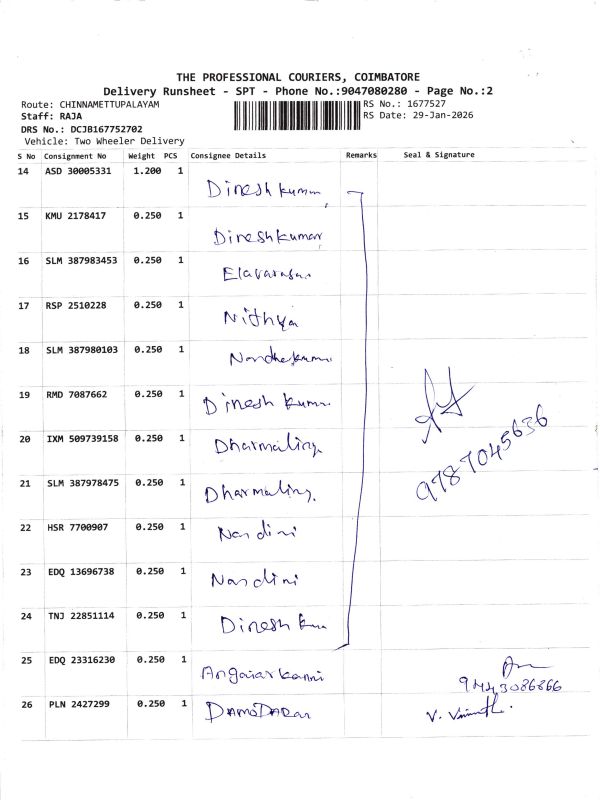 THE PROFESSIONAL COURIERS, COIMBATORE
Delivery Runsheet - SPT - Phone No.:9047080280 - Page No.:2
Route: CHINNAMETTUPALAYAM RS No.: 1677527
Staff: RAJA RS Date: 29-Jan-2026
DRS No.: DCJB167752702
Vehicle: Two Wheeler Delivery
S No Consignment No Weight PCS Consignee Details Remarks Seal & Signature
14 ASD 30005331 1.200 1 Dinesh kumar
15 KMU 2178417 0.250 1 Dineshkumar
16 SLM 387983453 0.250 1 Elavarasan
17 RSP 2510228 0.250 1 Nithya
18 SLM 387980103 0.250 1
19 RMD 7087662 0.250 1 Dinesh kumar
20 IXM 509739158 0.250 1 Dharmaling
9787045636
21 SLM 387978475 0.250 1 Dharmaling.
22 HSR 7700907 0.250 1 Nandini
23 EDQ 13696738 0.250 1 Nandini
24 TNJ 22851114 0.250 1 Dinesh
25 EDQ 23316230 0.250 1 Angaiarkanni
9443086866
26 PLN 2427299 0.250 1 DAMODARAN V.